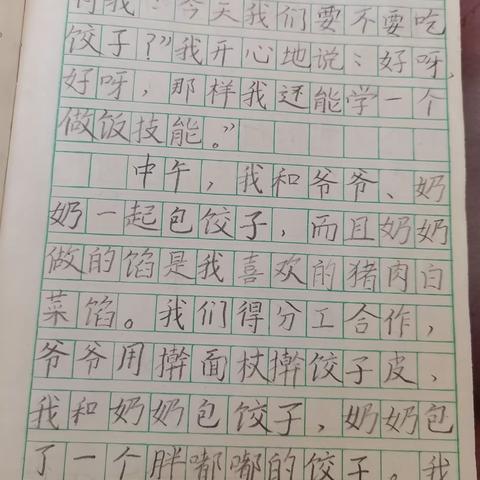 问我：“今天我们要不要吃
饺子？”我开心地说：好呀，
好呀，那样我还能学一个
做饭技能。”
中午，我和爷爷、奶
奶一起包饺子，而且奶奶
做的馅是我喜欢的猪肉白
菜馅。我们得分工合作，
爷爷用擀面杖擀饺子皮、
我和奶奶包饺子，奶奶包
了一个胖嘟嘟的饺子。我